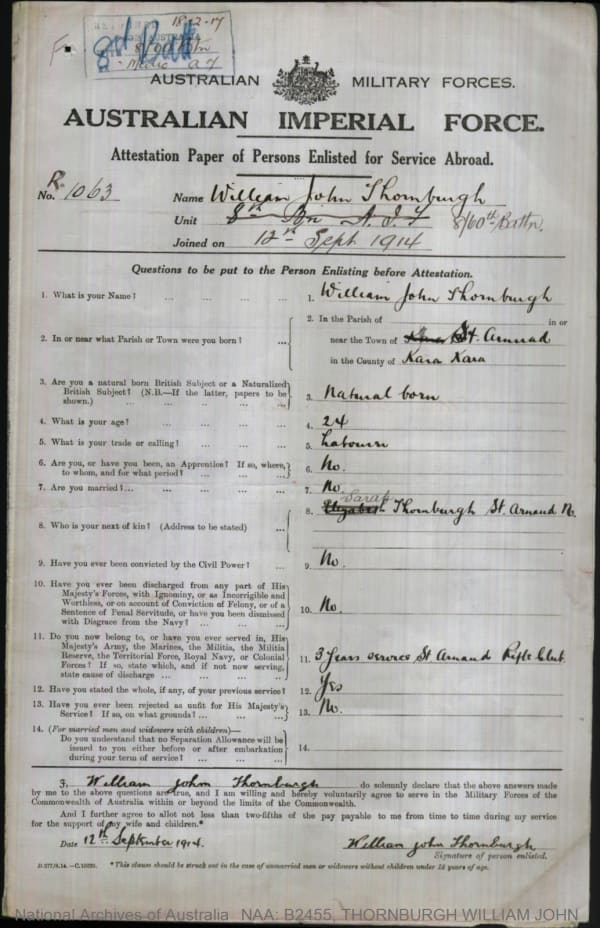 18-12-17
8th Battn
8/60 Battn
AUSTRALIAN MILITARY FORCES.
AUSTRALIAN IMPERIAL FORCE.
Attestation Paper of Persons Enlisted for Service Abroad.
No. R. 1063 Name William John Thornburgh
Unit 8th Bn A.I.F 8/60th Battn.
Joined on 12th Sept 1914
Questions to be put to the Person Enlisting before Attestation.
1. What is your Name? ... 1. William John Thornburgh
2. In or near what Parish or Town were you born? ... 2. In the Parish of in or
near the Town of St. Arnaud
in the County of Kara Kara
3. Are you a natural born British Subject or a Naturalized
British Subject? (N.B.—If the latter, papers to be
shown.) ... 3. Natural born
4. What is your age? ... 4. 24
5. What is your trade or calling? ... 5. Labourer
6. Are you, or have you been, an Apprentice? If so, where,
to whom, and for what period? ... 6. No.
7. Are you married? ... 7. No.
Sarah
8. Who is your next of kin? (Address to be stated) ... 8. Elizabeth Thornburgh St. Arnaud
9. Have you ever been convicted by the Civil Power? ... 9. No.
10. Have you ever been discharged from any part of His
Majesty's Forces, with Ignominy, or as Incorrigible and
Worthless, or on account of Conviction of Felony, or of a
Sentence of Penal Servitude, or have you been dismissed
with Disgrace from the Navy? ... 10. No.
11. Do you now belong to, or have you ever served in, His
Majesty's Army, the Marines, the Militia, the Militia
Reserve, the Territorial Force, Royal Navy, or Colonial
Forces? If so, state which, and if not now serving,
state cause of discharge ... 11. 3 Years service St Arnaud Rifle Club.
12. Have you stated the whole, if any, of your previous service? 12. Yes
13. Have you ever been rejected as unfit for His Majesty's
Service? If so, on what grounds? ... 13. No.
14. (For married men and widowers with children)—
Do you understand that no Separation Allowance will be
issued to you either before or after embarkation
during your term of service? ... 14.
I, William John Thornburgh do solemnly declare that the above answers made
by me to the above questions are true, and I am willing and hereby voluntarily agree to serve in the Military Forces of the
Commonwealth of Australia within or beyond the limits of the Commonwealth.
And I further agree to allot not less than two-fifths of the pay payable to me from time to time during my service
for the support of my wife and children.*
Date 12th September 1914. William John Thornburgh
Signature of person enlisted.
*This clause should be struck out in the case of unmarried men or widowers without children under 18 years of age.
National Archives of Australia NAA: B2455, THORNBURGH WILLIAM JOHN